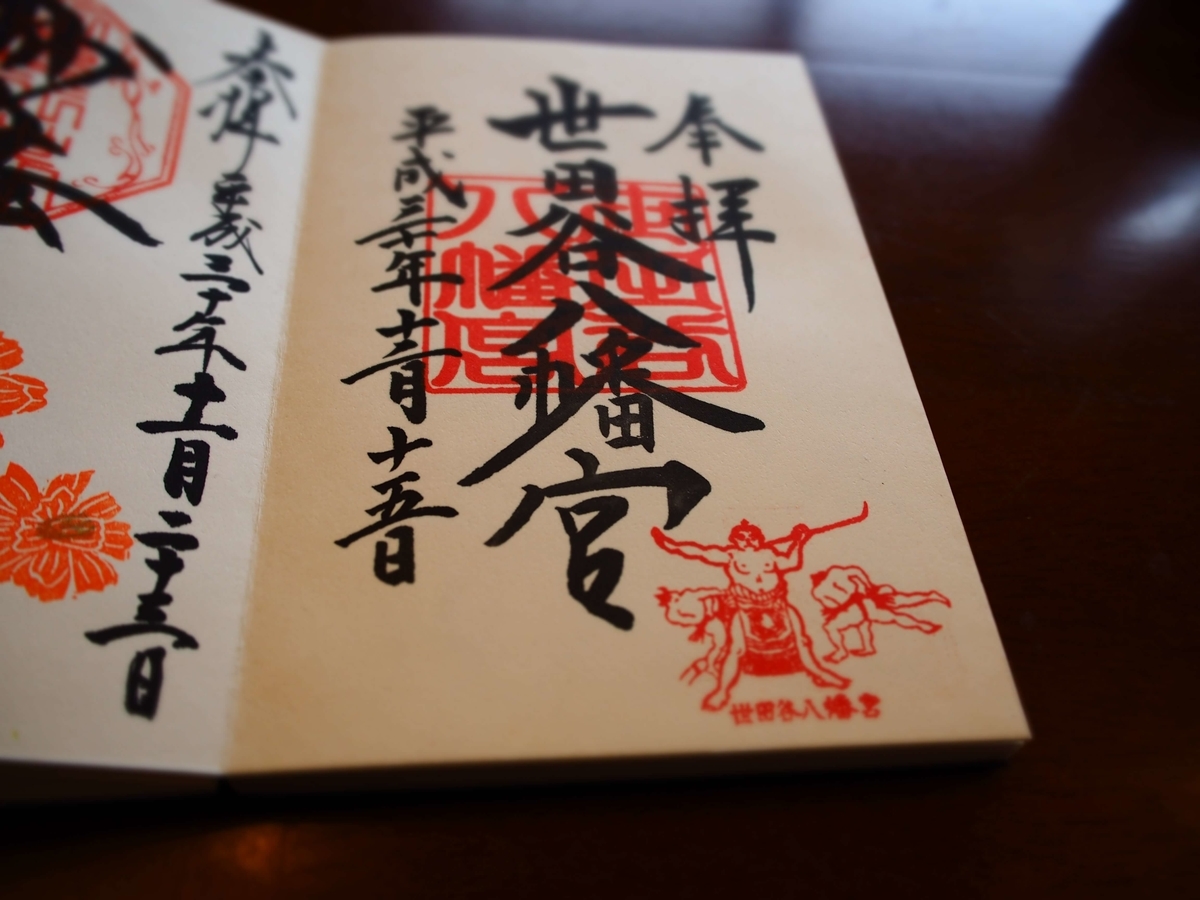 奉拝
世田谷八幡宮
世田谷
八幡宮
平成三十年十二月十五日
世田谷八幡宮
奉拝 平成三十年十一月二十三日